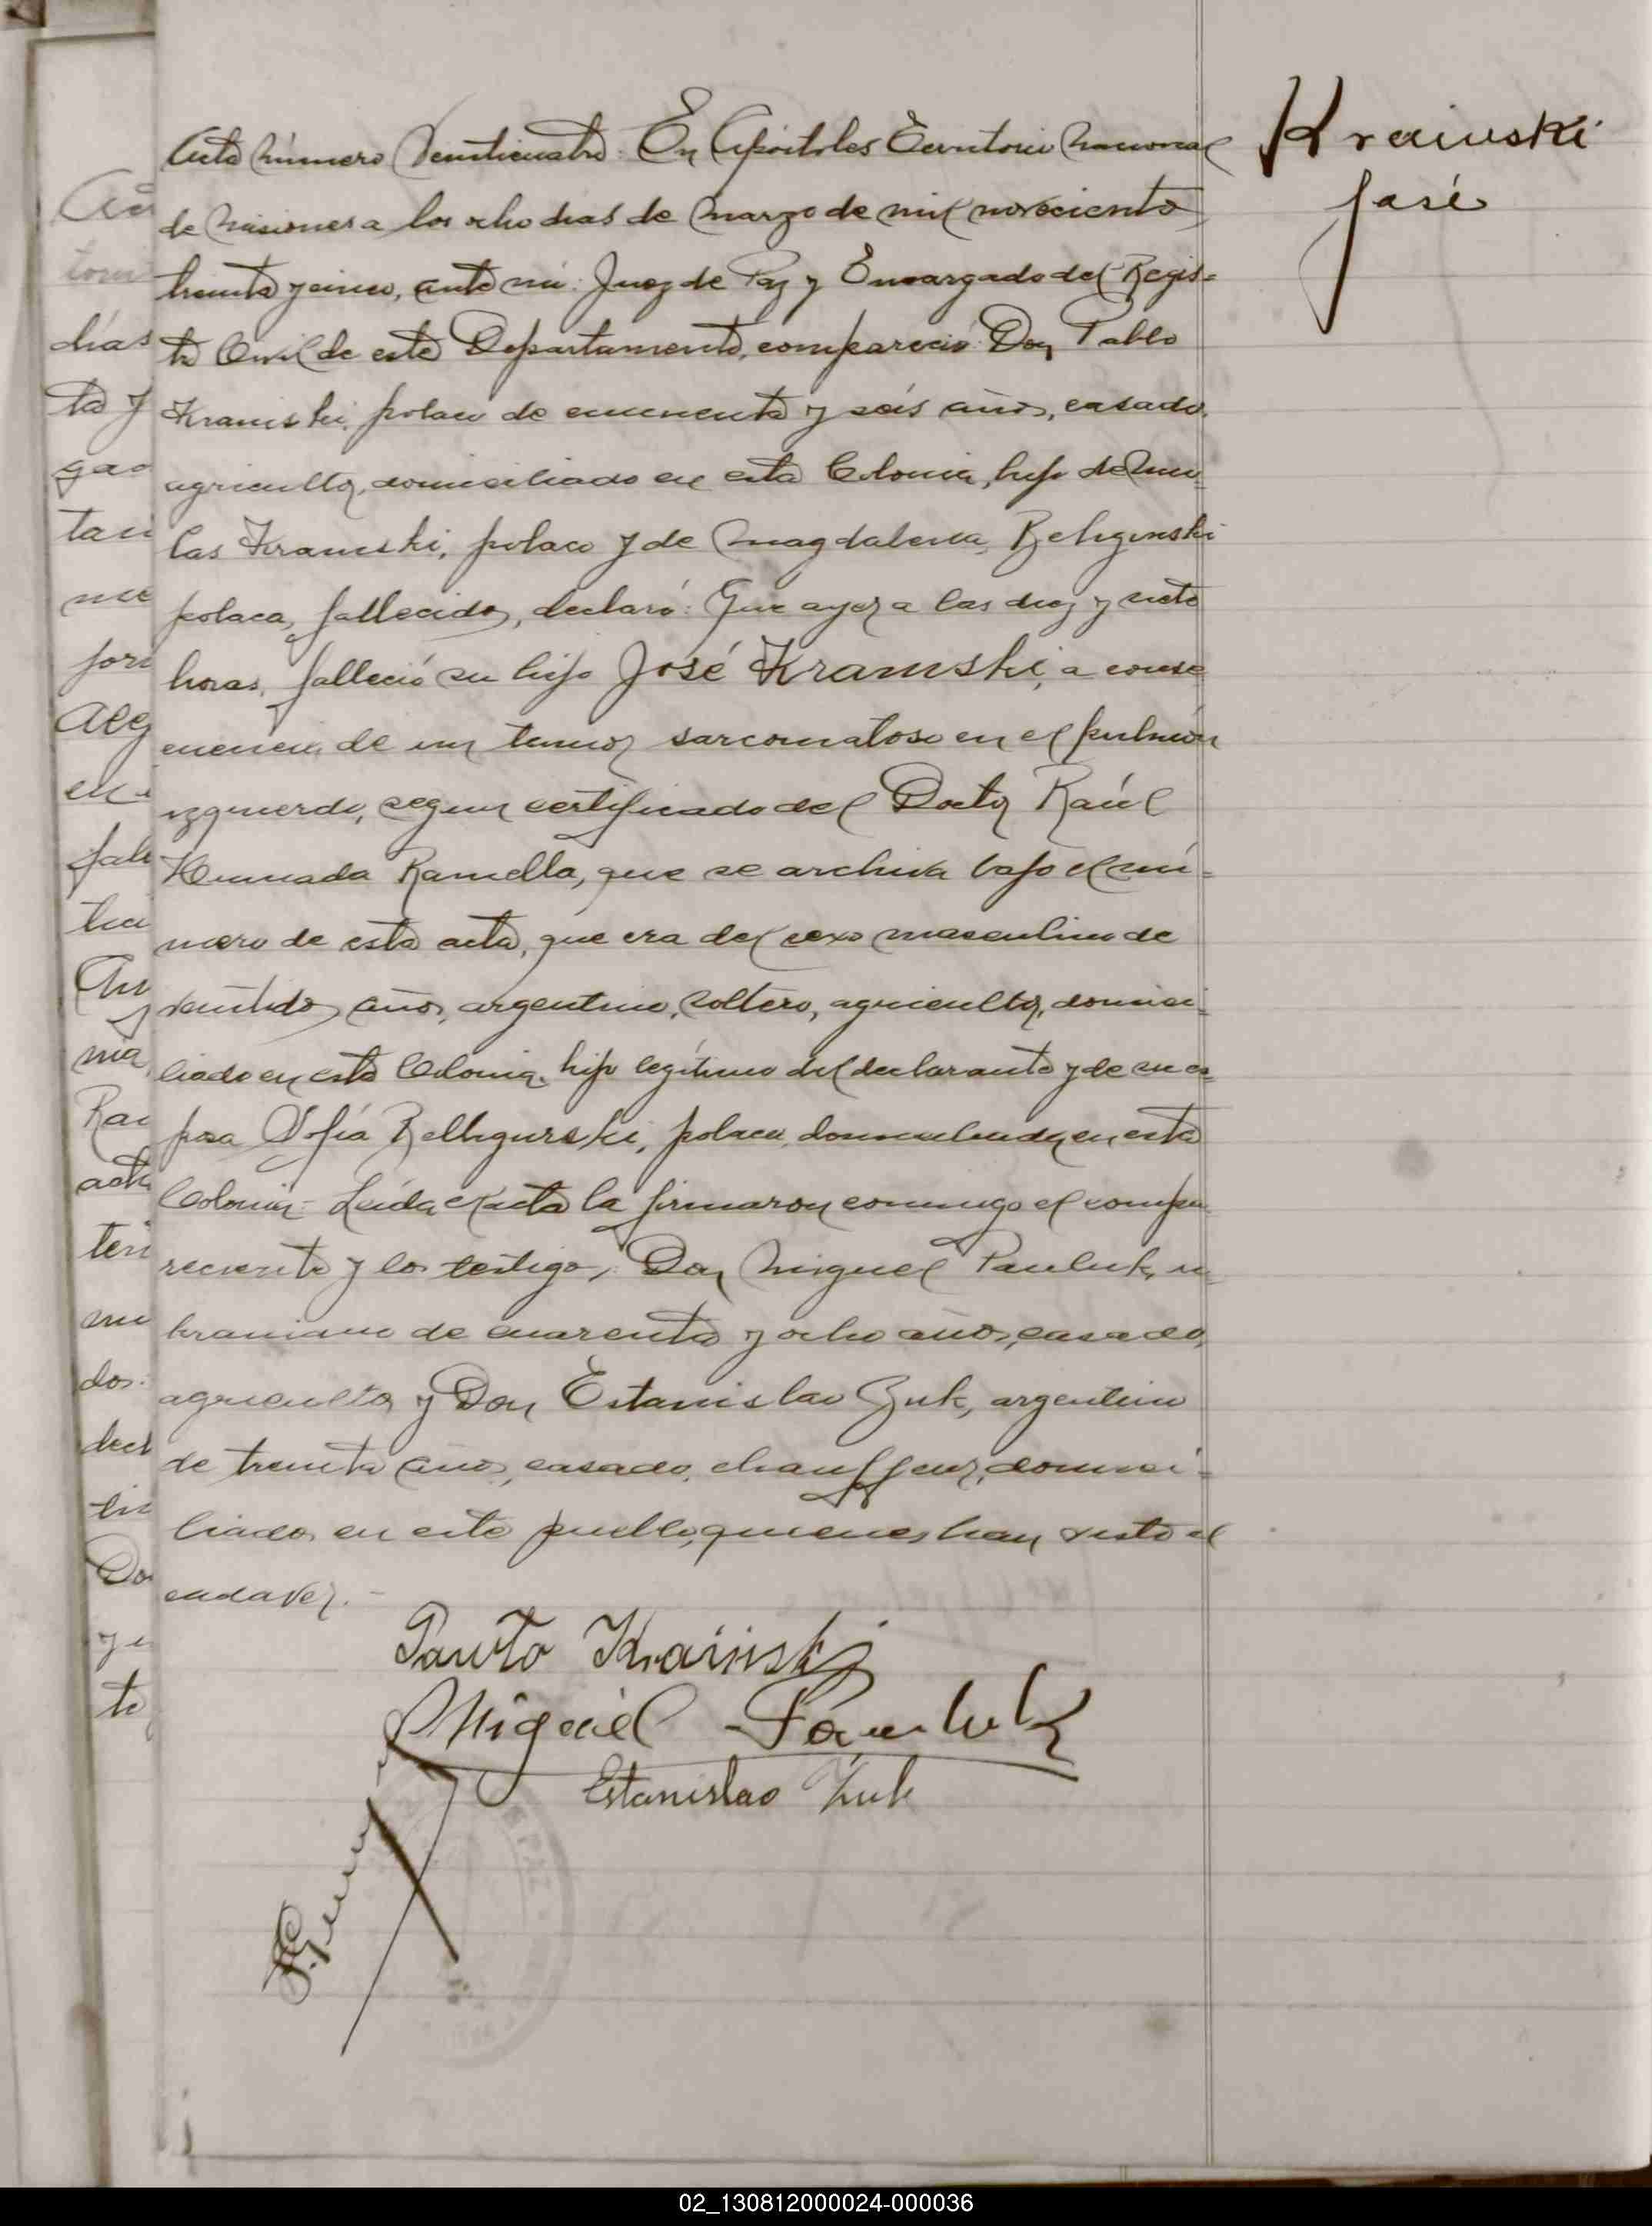 Krainski
José
Acta número Venticuatro: En Apóstoles Territorio Nacional
de Misiones a los ocho dias de Marzo de mil novecientos
treinta y cinco, ante mi: Juez de Paz y Encargado del Regis=
tro Civil de este Departamento, compareció: Don Pablo
Krainski, polaco de cincuenta y seis años, casado,
agricultor, domiciliado en esta Colonia, hijo de
las Krainski, polaco y de Magdalena
polaca, fallecidos, declaró: Que ayer a las diez y siete
horas, falleció su hijo José Krainski, a conse
cuencia de un tumor sarcomatoso en el pulmón
izquierdo, segun certificado del Doctor Raúl
Ramella, que se archiva bajo el nú=
mero de esta acta, que era del sexo masculino de
ventidos años, argentino, soltero, agricultor, domici=
liado en esta Colonia, hijo legítimo del declarante y de su es=
posa Sofía polaca, domiciliada en esta
Colonia- Leída el acta la firmaron conmigo el compa
reciente y los testigos, Don Miguel Pauluk, u=
kraniano de cuarenta y ocho años, casado,
agricultor y Don Estanislao Zuk, argentino
de treinta años, casado, chauffeur, domici=
liados en este pueblo, quienes han visto el
cadaver.-
Pawlo Krainski
Miguel Pauluk
Estanislao Zuk
Ac
tori
días
ta y
gad
tan
me
jori
aeg
en
fall
tici
An
nia,
Rai
acta
ten
mi
dos.
decl
tin
Do
y e
to
02_130812000024-000036